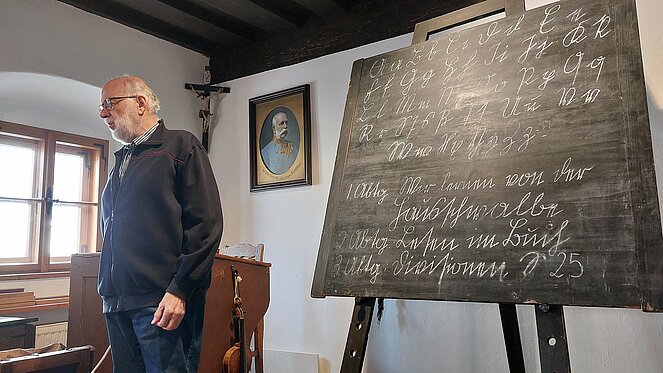 Aa Bb Cc Dd Ee
Ff Gg Hh Ii Jj Kk
Ll Mm Nn Oo Pp Qq
Rr Ss ß Tt Uu Vv
Ww Xx Yy Zz
1. Abtg. Wir lernen von der
Hausschwalbe
2. Abtg. Lesen im Buch
3. Abtg. Divisionen, S 25